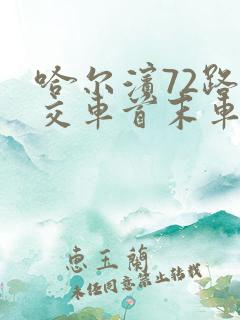 哈尔滨72路
交车首末车
惠玉兰
未经同意禁止转载